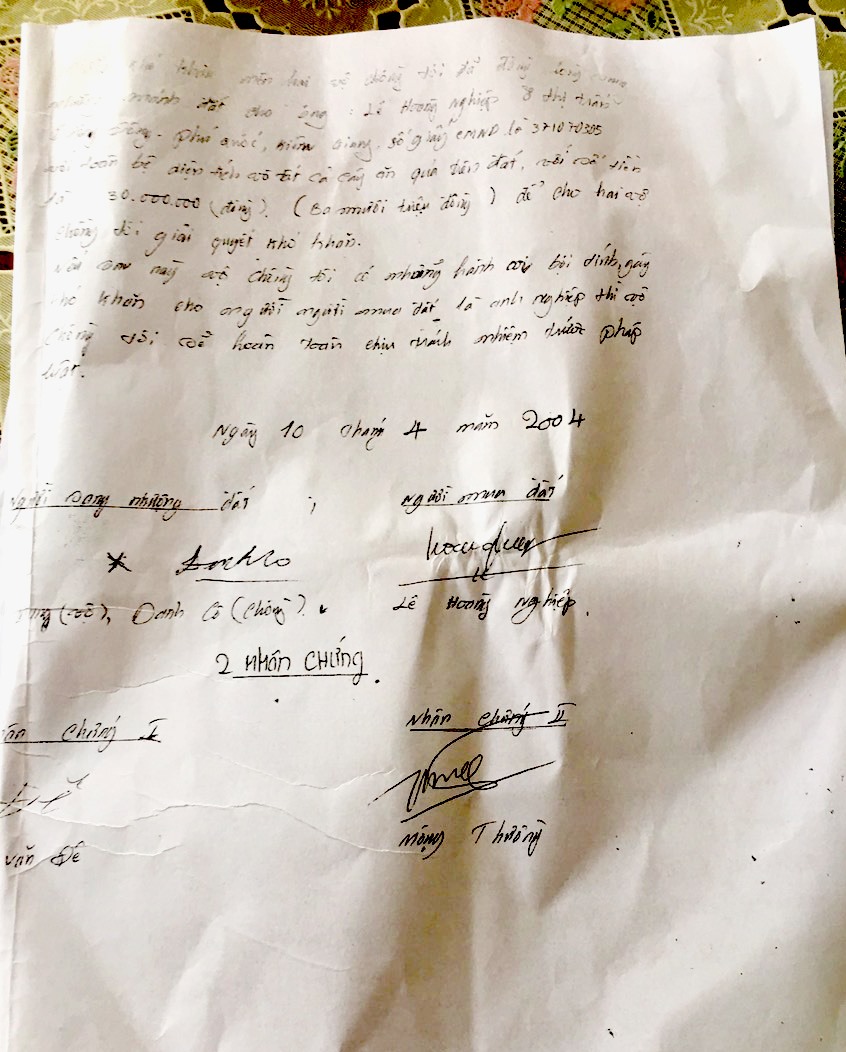 khó khăn nên hai vợ chồng tôi đã đồng
mảnh đất cho ông : Lê Hoàng Nghiệp 8 thị trấn
Đông. Phú Quốc, Kiên Giang, số giấy CMND là 371070305
với toàn bộ diện tích và tất cả cây ăn quả trên đất, với số tiền
là 30.000.000 (đồng). (Ba mươi triệu đồng) để cho hai vợ
chồng tôi giải quyết khó khăn.
Nếu sau này vợ chồng tôi có những hành vi bội tính, gây
khó khăn cho người người mua đất là anh nghiệp thì vợ
chồng tôi sẽ hoàn toàn chịu trách nhiệm trước pháp
luật.
Ngày 10 tháng 4 năm 2004
Người sang nhượng đất , Người mua đất
(vợ), Danh Cô (chồng). Lê Hoàng Nghiệp.
2 NHÂN CHỨNG.
ân chứng I Nhân chứng II
văn Đê Mộng Thường